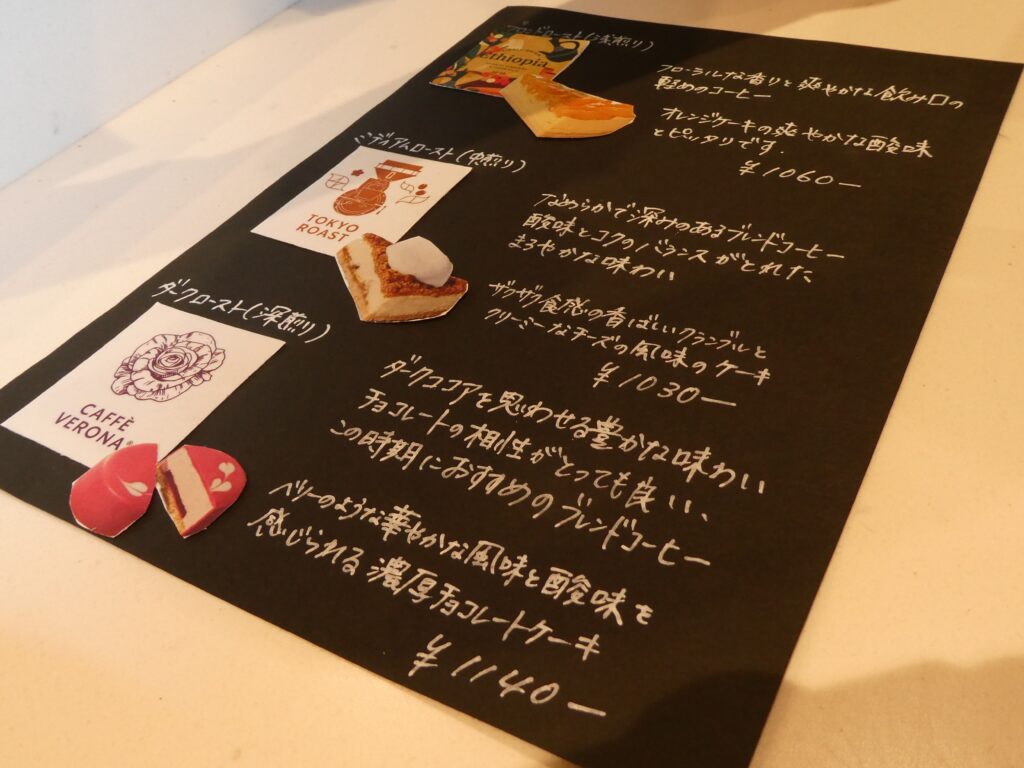 ブロンドロースト(浅煎り)
Ethiopia
フローラルな香りと爽やかな飲み口の
軽めのコーヒー
オレンジケーキの爽やかな酸味
とピッタリです.
¥1060ー
ミディアムロースト(中煎り)
TOKYO
ROAST
なめらかで深みのあるブレンドコーヒー
酸味とコクのバランスがとれた
まろやかな味わい
ザクザク食感の香ばしいクランブルと
クリーミーなチーズの風味のケーキ
¥1030ー
ダークロースト(深煎り)
CAFFÈ
VERONA®
ダークココアを思わせる豊かな味わい
チョコレートの相性がとっても良い、
この時期におすすめのブレンドコーヒー
ベリーのような華やかな風味と酸味を
感じられる濃厚チョコレートケーキ
¥1140ー